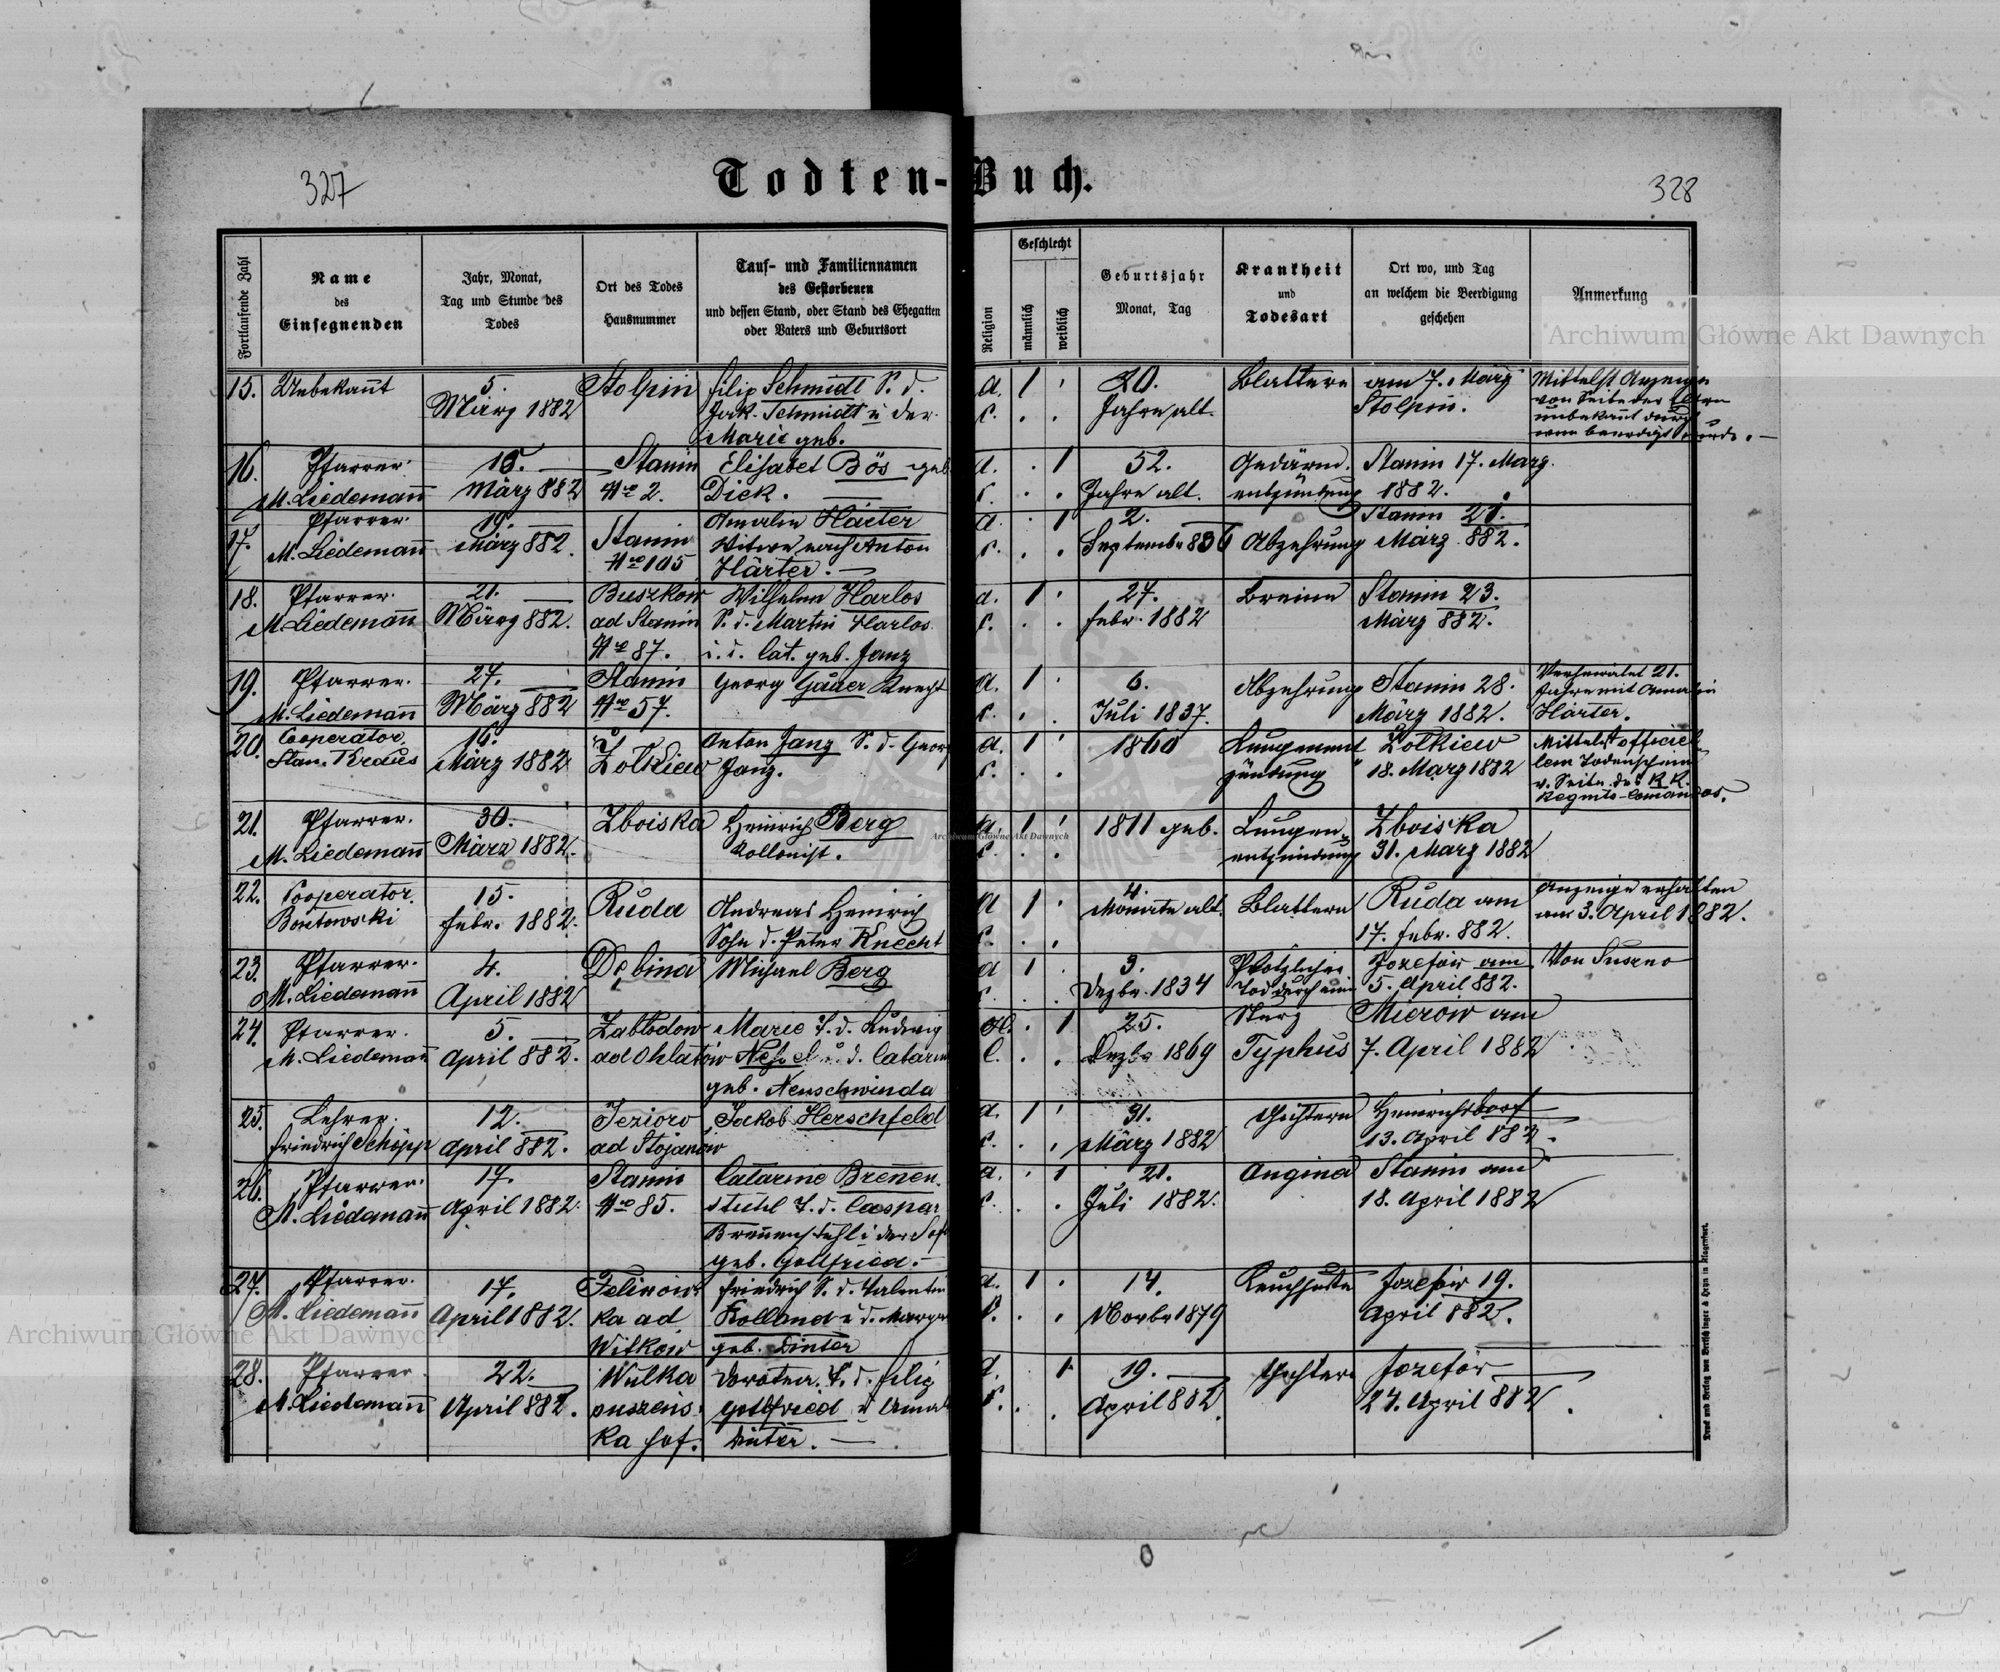 327
Todten-Buch.
328
Fortlaufende Zahl
Name
des
Einsegnenden
Jahr, Monat,
Tag und Stunde des
Todes
Ort des Todes
Hausnummer
Tauf- und Familiennamen
des Gestorbenen
und dessen Stand, oder Stand des Ehegatten
oder Vaters und Geburtsort
Religion
Geschlecht
männlich
weiblich
Geburtsjahr
Monat, Tag
Krankheit
und
Todesart
Ort wo, und Tag
an welchem die Beerdigung
geschehen
Anmerkung
Archiwum Główne Akt Dawnych
15. Unbekañt 5. Stolpin filip Schmidt S. d. a. 1 20. Blattern am 7. März Mittelst Anzeige
März 1882 Jak. Schmidt u der C. Jahre alt. Stolpin. von Seite der
Marie geb. unbekañt
beerdigt wurde. —
16. Pfarrer 15. Stanin Elisabet Bös geb a. 1 52. Gedärm. Stanin 17. März
M. Liedemañ März 882 No 2. Dick. C. Jahre alt. entzündung 1882.
17. Pfarrer 19. Stanin Amalia Härter a. 1 2. Abzehrung Stanin 21.
M. Liedemañ März 882. No 105 Witwe nach Anton C. Septembr 836 März 882.
Härter. —
18. Pfarrer 21. Buszkow Wilhelm Harlos a. 1 27. Breine Stanin 23.
M. Liedemañ März 882. ad Stanin S. d. Martin Harlos C. febr. 1882 März 882.
No 87. u. d. Cat. geb. Janz
19. Pfarrer. 27. Stanin Georg Gauer Knecht a. 1 6. Abzehrung Stanin 28. Verheiratet 21.
M. Liedemañ März 882 No 57. C. Juli 1837. März 1882. Jahre mit Amalia
Härter.
20. Cooperator 16. Zolkiew Anton Janz S. d. Georg a. 1 1860 Lungenent Zolkiew Mittelst officiel
Stan. Kraus März 1882 Janz. C. zündung 18. März 1882 lem Todenschein
v. Seite des K. K.
Regmts-Comandos.
21. Pfarrer. 30. Zboiska Heinrich Berg a. 1 1811 geb. Lungen Zboiska
M. Liedemañ März 1882. Kollonist. C. entzündung 31. März 1882
Archiwum Główne Akt Dawnych
22. Cooperator 15. Ruda Andreas Heinrich a 1 4. Blattern Ruda am Anzeige erhalten
febr. 1882. Sohn d. Peter Knecht C. Monate alt. 17. febr. 882. am 3. April 1882.
23. Pfarrer. 4. Dębina Michael Berg a 1 3. Plötzlicher Jozefow am Von Suszno
M. Liedemañ April 1882 C. Dezbr. 1834 Tod durch 5. April 882.
24. Pfarrer. 5. Zabłodow Marie T. d. Ludwig A. 1 25. Typhus Mierow am
M. Liedemañ April 882. ad Ohlatów u. d. Catarin C. Dezbr 1869 7. April 1882
geb. Neuschwinda
25. Lehrer. 12. Jezioro Jakob Herschfeld a. 1 31. Gichtern Heinrichsdorf
friedrich Schöpp April 882. ad Stojanow C. März 1882 13. April 882.
26. Pfarrer. 17. Stanin Catarine Brenen. a. 1 21. Angina Stanin am
M. Liedemañ April 1882. No 85. stuhl T. d. Caspar C. Juli 1882. 18. April 1882
Breñenstuhl u der Sof
geb. Gottfried. —
27. Pfarrer. 17. Felinow friedrich S. d. Valentin a. 1 14. Keuchhusten Jozefow 19.
M. Liedemañ April 1882. ka ad Kolland u d. Margar C. Novbr 1879 April 882.
Witkow geb. Dinter
Archiwum Główne Akt Dawnych
28. Pfarrer 22. Wulka Dorotea. T. d. filip a. 1 19. Gichtern Jozefow
M. Liedemañ April 882. suszens Gottfried u Amal C. April 882. 24. April 882.
ka hof. Dinter. —